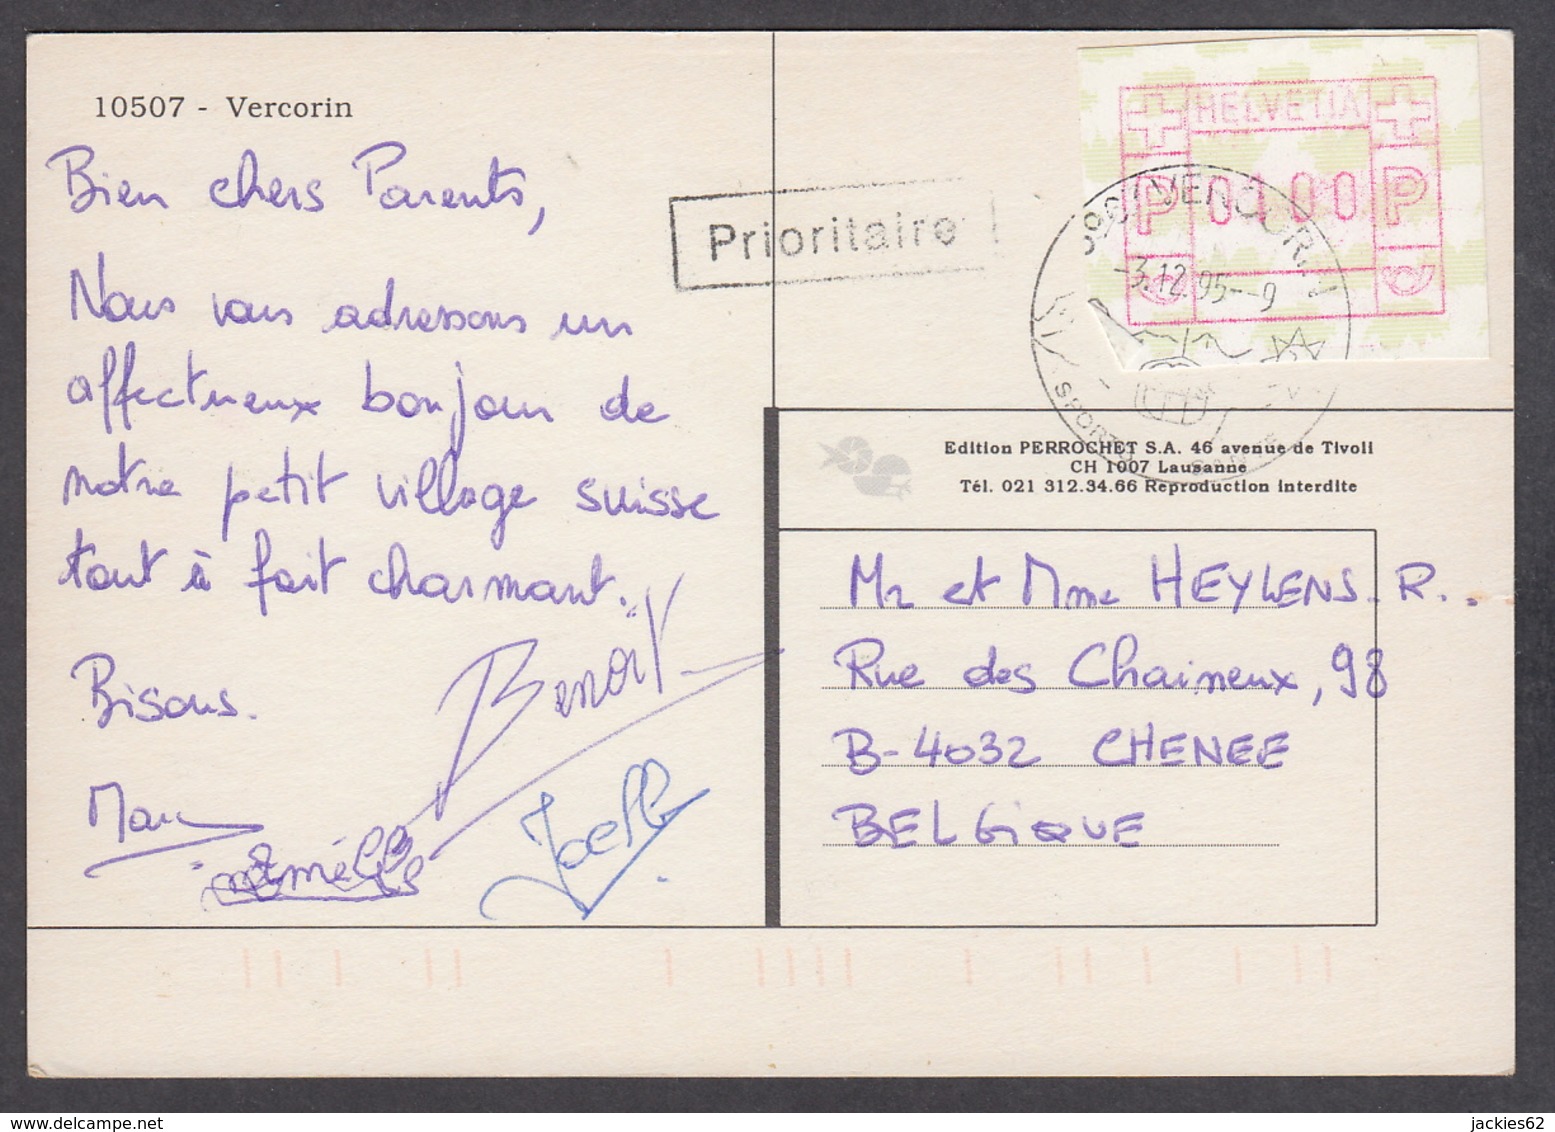 10507 - Vercorin
Bien chers Parents,
Nous vous adressons un
affectueux bonjour de
notre petit village suisse
tout à fait charmant.
Bisous.
Benoît
Marc
Joëlle
Prioritaire
HELVETIA
P 0100 P
VERCORIN
-3.12.95--9
SPORTS
Edition PERROCHET S.A. 46 avenue de Tivoli
CH 1007 Lausanne
Tél. 021 312.34.66 Reproduction interdite
Mr et Mme HEYLENS. R.
Rue des Chaineux, 98
B-4032 CHENEE
BELGIQUE
delcampe.net
jackies62